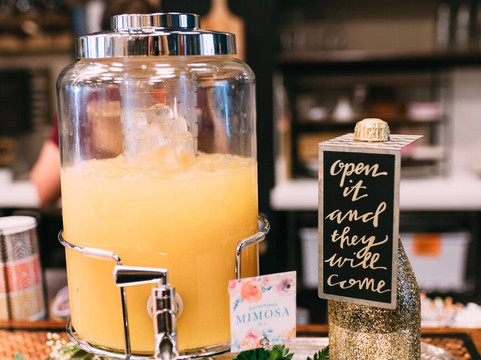 open
it
and
they
will
come
MIMOSA